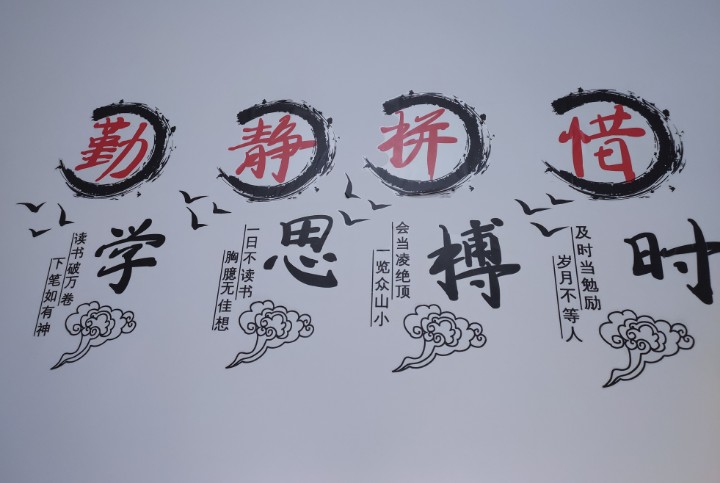 勤
学
读书破万卷
下笔如有神
静
思
一日不读书
胸臆无佳想
拼
搏
会当凌绝顶
一览众山小
惜
时
及时当勉励
岁月不等人